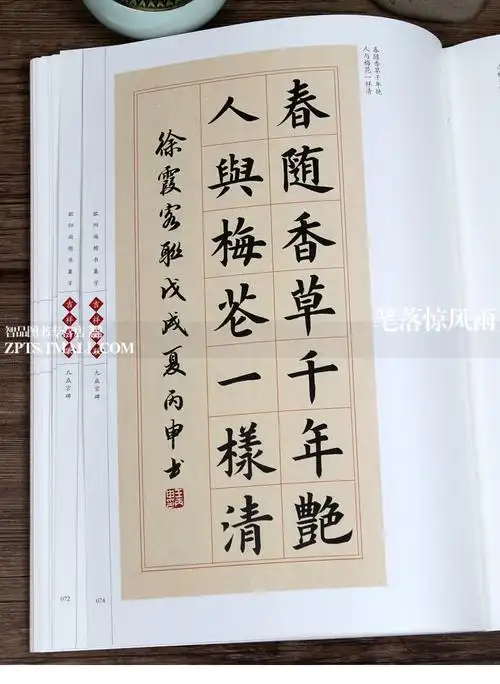 春随香草千年艷
人與梅花一樣清
徐霞客联戊戌夏丙申书
春随香草千年艳
人与梅花一样清
欧阳询楷书集字
吉祥
九成宫碑
欧阳询楷书集字
吉祥
九成宫碑
072
074
智品图书专营店
ZPTS.TMALL.COM
笔落惊风雨